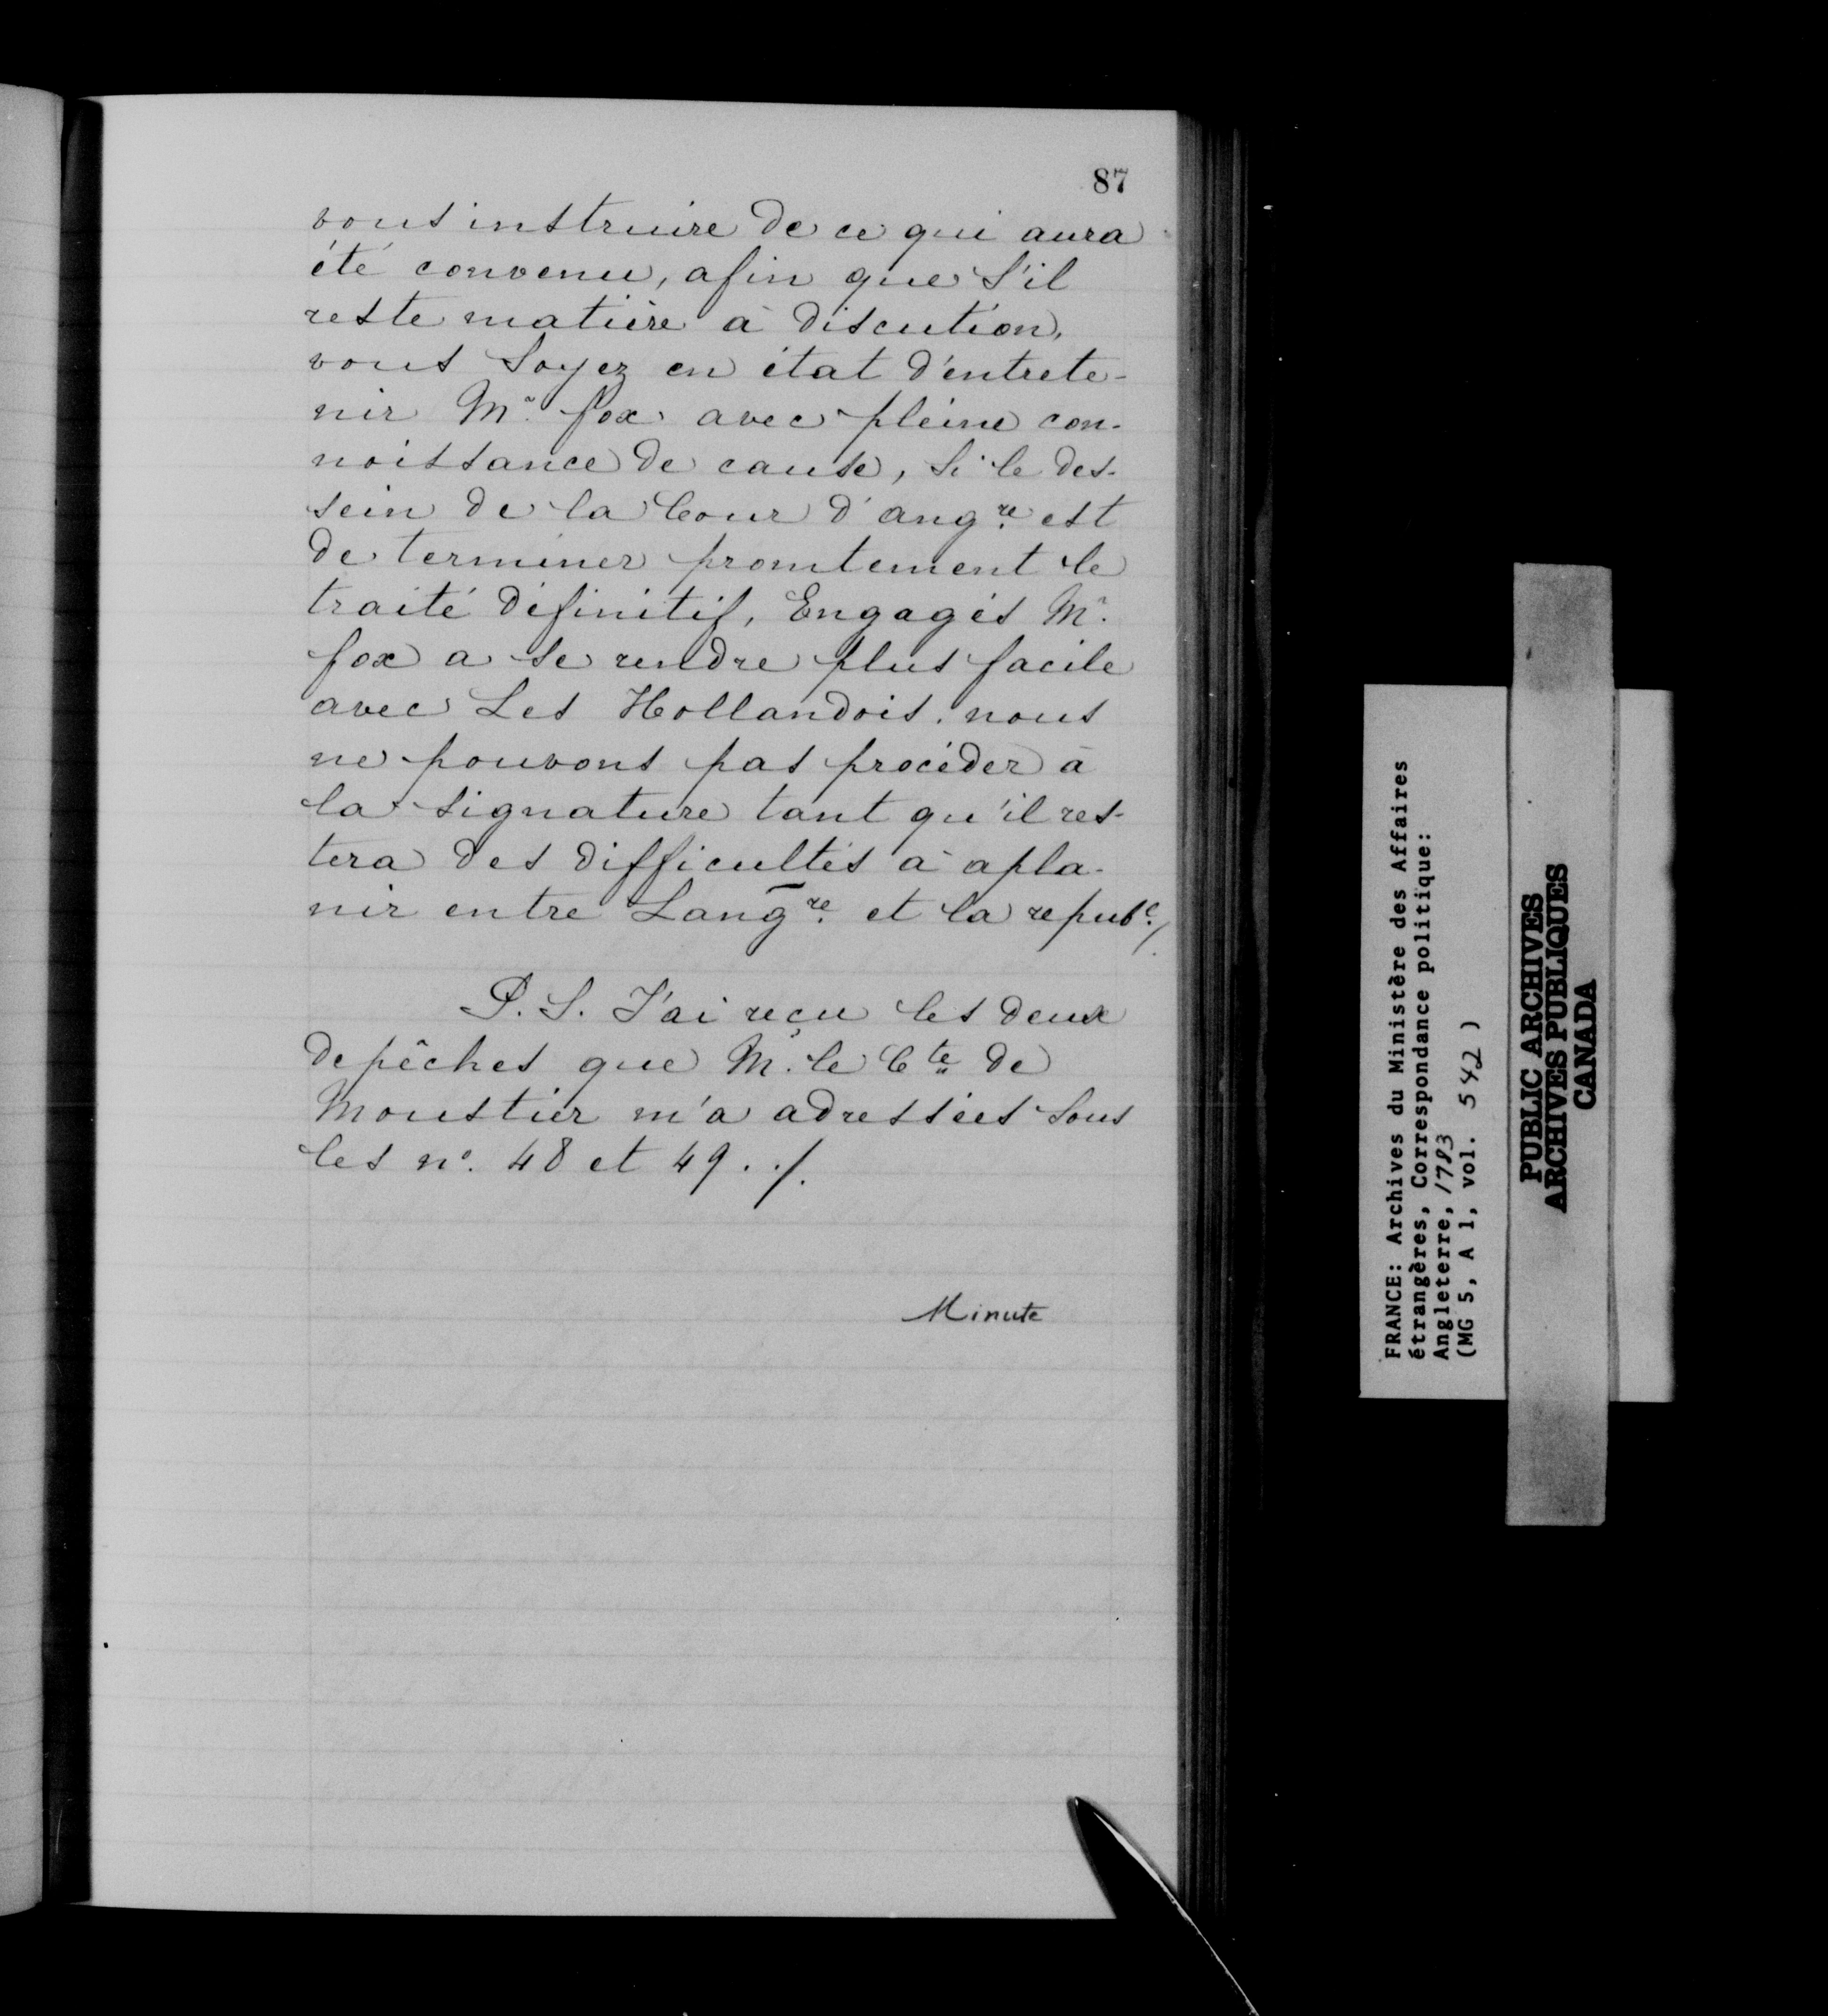 87
vous instruire de ce qui aura
été convenu, afin que s'il
reste matière à discution,
vous soyez en état d'entrete-
nir Mr. fox avec pleine con-
noissance de cause, si le des-
sein de la Cour d'angre. est
de terminer promtement le
traité définitif, Engagés Mr.
fox a se rendre plus facile
avec Les Hollandois. nous
ne pouvons pas procéder à
la signature tant qu'il res-
tera des difficultés à apla-
nir entre Langre. et la repube./.
P. S. J'ai reçu les deux
depêches que M. le Cte de
Moustier m'a adressées sous
les no. 48 et 49 ./.
Minute
FRANCE: Archives du Ministère des Affaires
étrangères, Correspondance politique:
Angleterre, 1783
(MG 5, A 1, vol. 542 )
PUBLIC ARCHIVES
ARCHIVES PUBLIQUES
CANADA